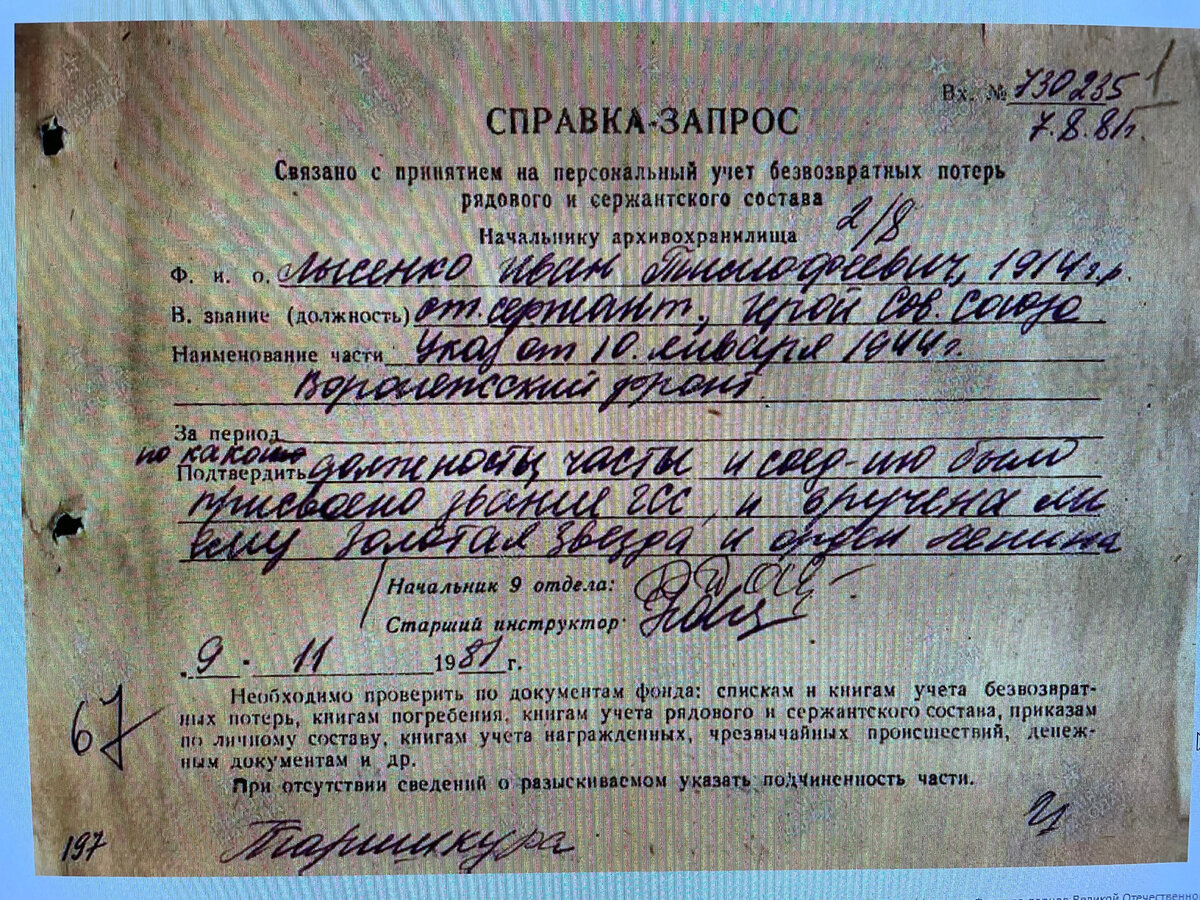 Вх. № 730235 1
7.8.81г.
СПРАВКА-ЗАПРОС
Связано с принятием на персональный учет безвозвратных потерь
рядового и сержантского состава
2/8
Начальнику архивохранилища
Ф. и. о. Лысенко Иван Тимофеевич, 1914 г.р.
В. звание (должность) ст. сержант, Герой Сов. Союза
Наименование части Указ от 10. января 1944 г.
Воронежский фронт
За период
по какой
Подтвердить должность, часть и соед-ию было
присвоено звание ГСС, и вручена ли
ему Золотая Звезда и орден Ленина
Начальник 9 отдела:
Старший инструктор
„ 9 " 11 1981 г.
Необходимо проверить по документам фонда: спискам и книгам учета безвозврат-
ных потерь, книгам погребения, книгам учета рядового и сержантского состава, приказам
по личному составу, книгам учета награжденных, чрезвычайных происшествий, денеж-
ным документам и др.
При отсутствии сведений о разыскиваемом указать подчиненность части.
67
197